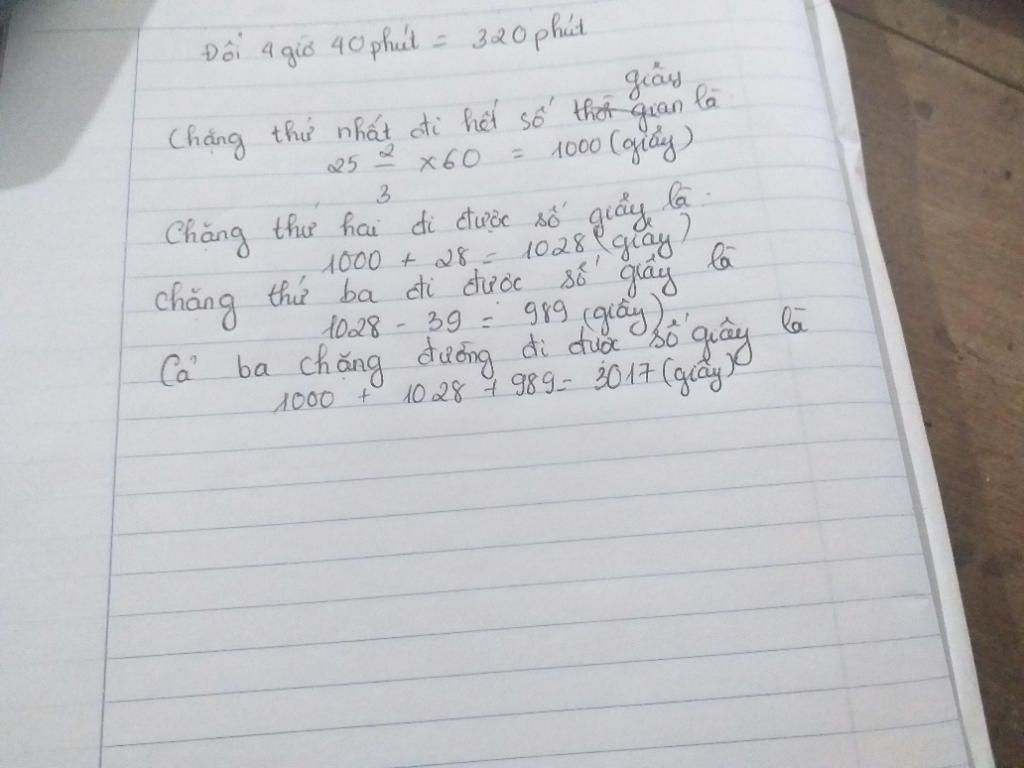 Đổi 4 giờ 40 phút = 320 phút
giây
Chặng thứ nhất đi hết số thời gian là
25 2/3 x 60 = 1000 (giây)
Chặng thứ hai đi được số giây là.
1000 + 28 = 1028 (giây)
Chặng thứ ba đi được số giây là
1028 - 39 = 989 (giây)
Cả ba chặng đường đi được số giây là
1000 + 1028 + 989 = 3017 (giây)